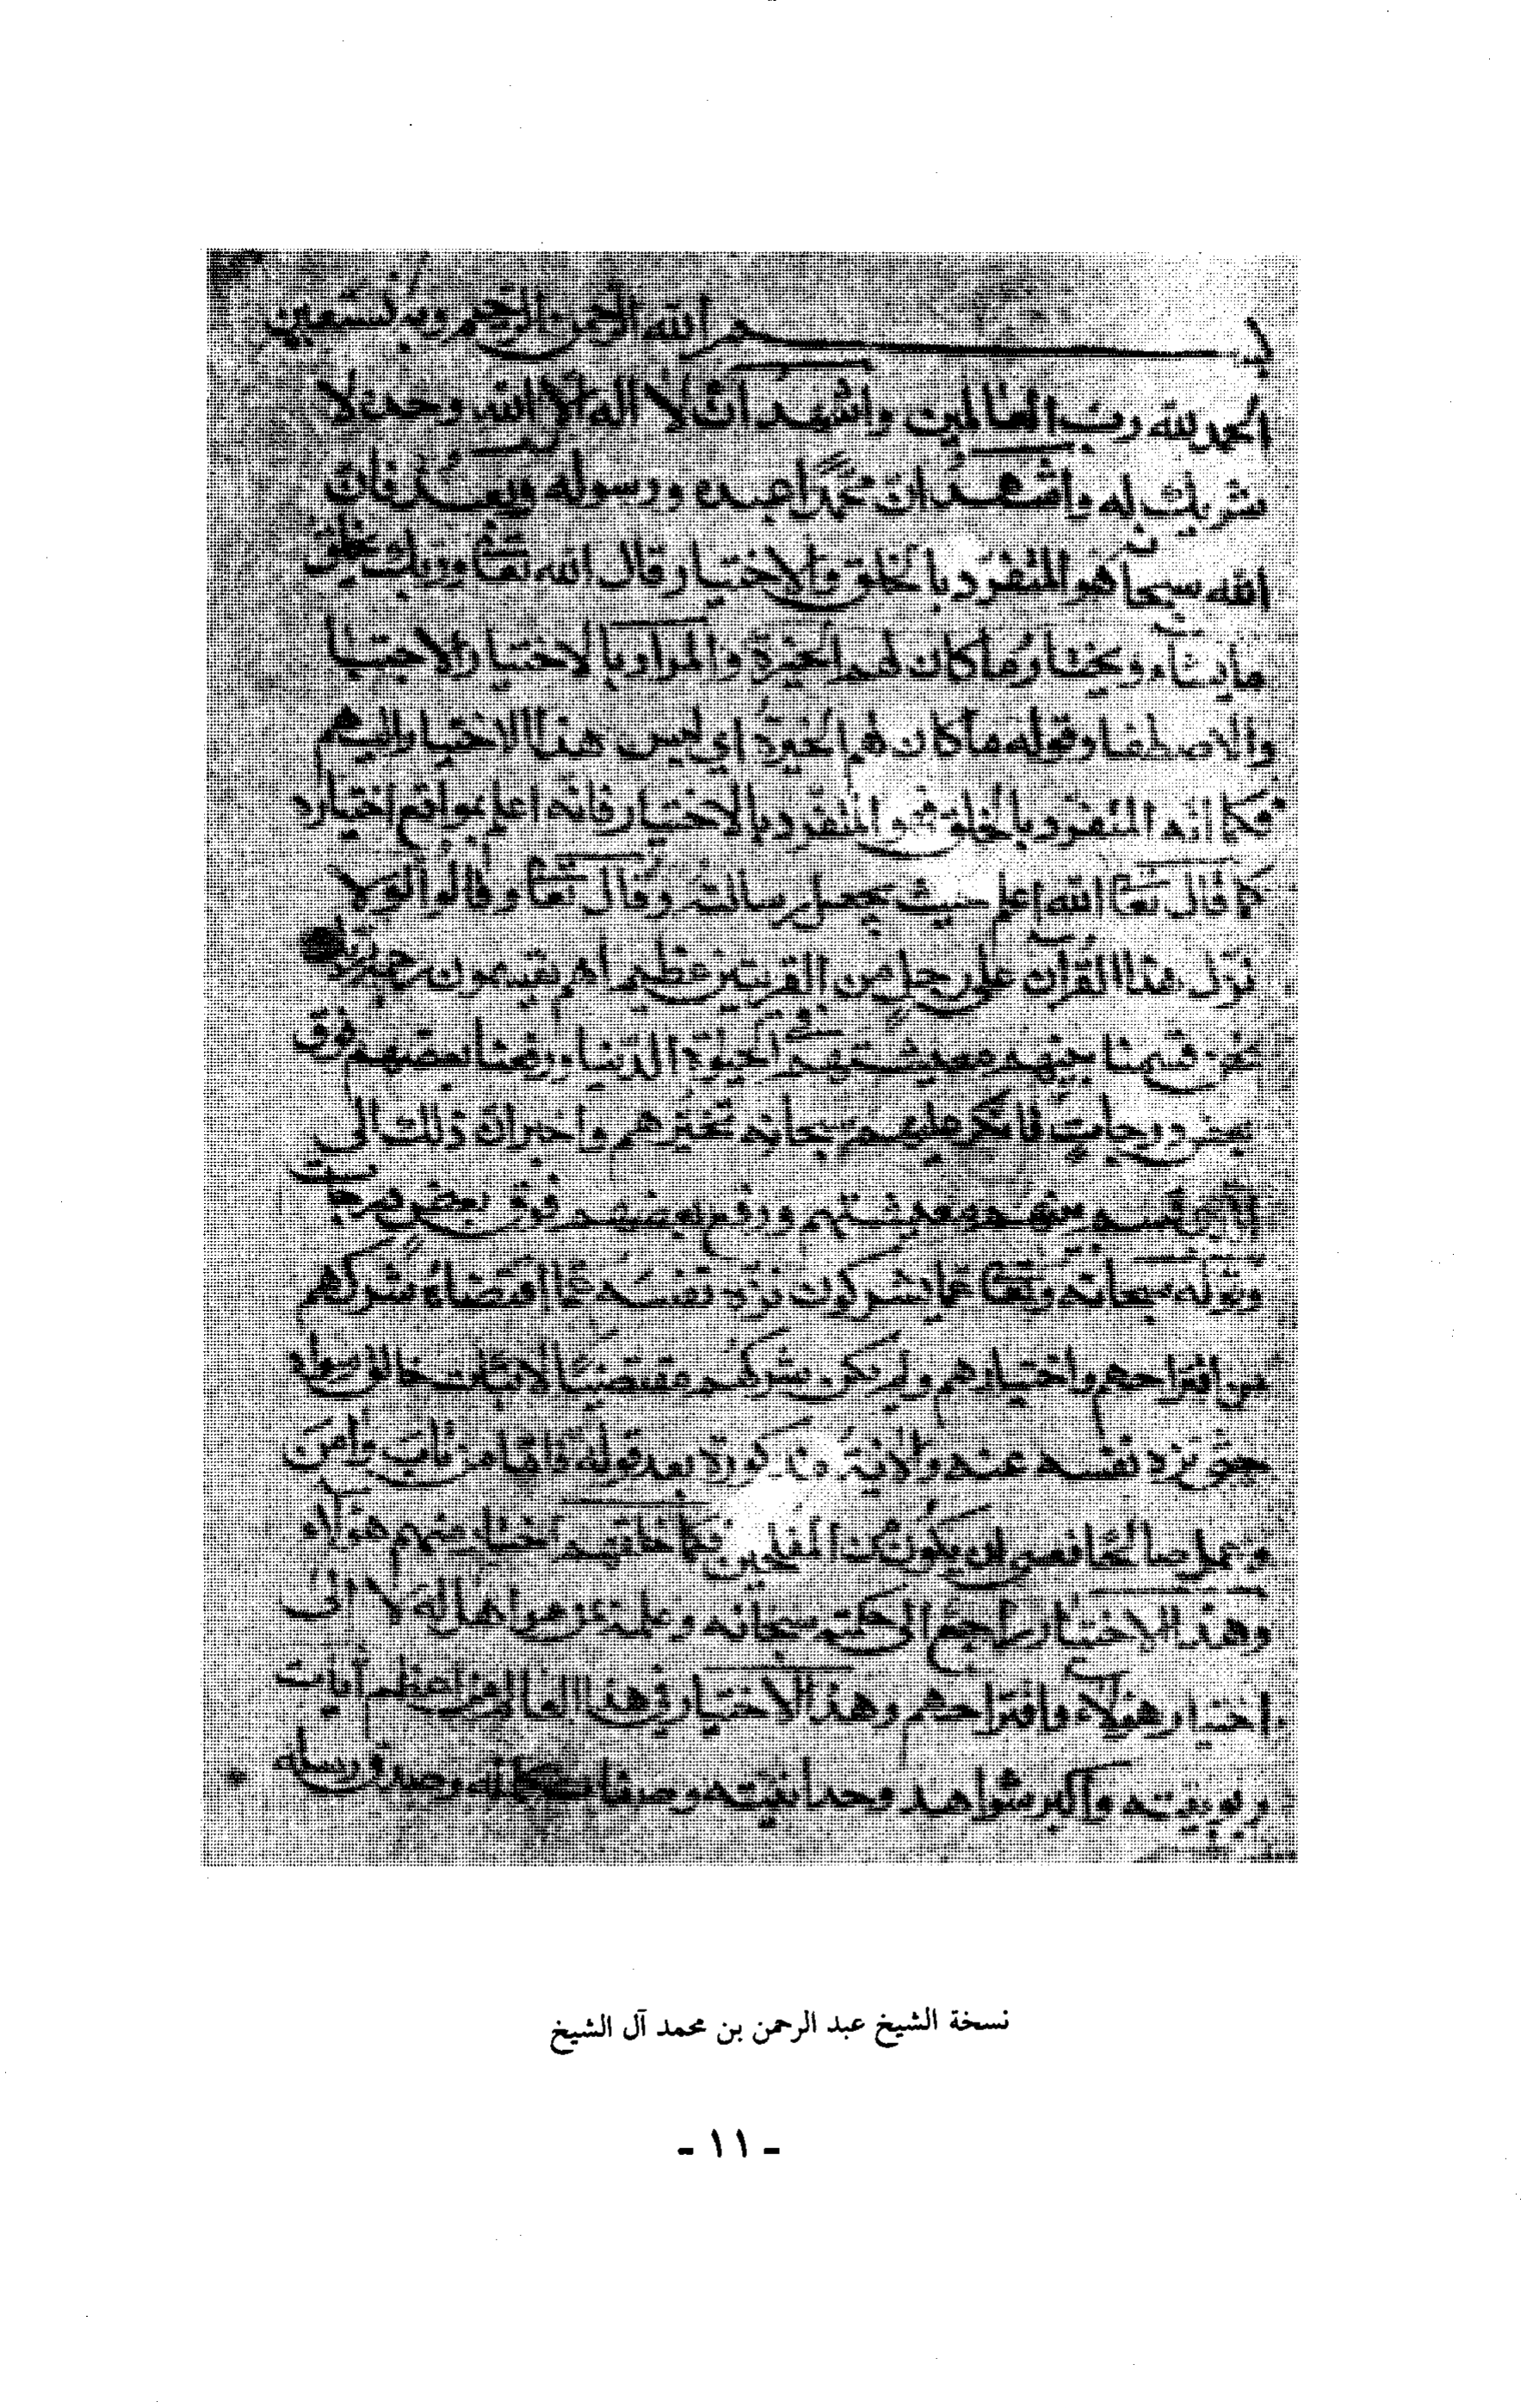 بسم الله الرحمن الرحيم وبه نستعين
الحمد لله رب العالمين واشهد ان لا اله الا الله وحده لا
شريك له واشهد ان محمدًا عبده ورسوله وبعد فان
الله سبحا هو المنفرد بالخلق والاختيار قال الله تعا وربك يخلق
ما يشاء ويختار ما كان لهم الخيرة والمراد بالاختيار الاجتبا
والاصطفا وقوله ما كان لهم الخيرة اي ليس هذا الاختيار اليهم
فكما انه المنفرد بالخلق فهو المنفرد بالاختيار فانه اعلم بمواقع اختياره
كما قال تعا الله اعلم حيث يجعل رسالته وقال تعا وقالوا لولا
نزل هذا القرآن على رجل من القريتين عظيم اهم يقسمون رحمة ربك
نحن قسمنا بينهم معيشتهم في الحيوة الدنيا ورفعنا بعضهم فوق
بعض درجات فانكر عليهم سبحانه تخيرهم واخبر ان ذلك الى
الذي قسم بينهم معيشتهم ورفع بعضهم فوق بعض درجات
وقوله سبحانه وتعا عما يشركون نزه نفسه عما اقتضاه شركهم
من اقتراحهم واختيارهم ولم يكن شركهم مقتضيًا لاثبات خالق سواه
حتى نزه نفسه عنه والاية مذكورة بعد قوله فاما من تاب وامن
وعمل صالحا فعسى ان يكون من المفلحين فكما خلقهم اختار منهم هؤلاء
وهذا الاختيار راجع الى حكمته سبحانه وعلمه بمن هو اهل له لا الى
اختيار هؤلاء واقتراحهم وهذا الاختيار في هذا العالم من اعظم آيات
ربوبيته واكبر شواهد وحدانيته وصفات كماله وصدق رسله
نسخة الشيخ عبد الرحمن بن محمد آل الشيخ
- ١١ -